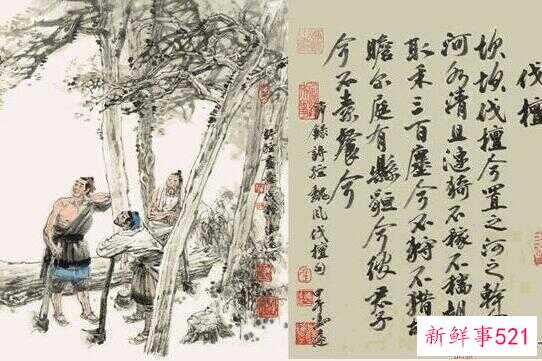 伐檀
坎坎伐檀兮置之河之幹
河水清且漣猗不稼不穡胡
取禾三百廛兮不狩不猎胡
瞻尔庭有縣貆兮彼君子
兮不素餐兮
節錄詩經魏風伐檀句
新鲜事521